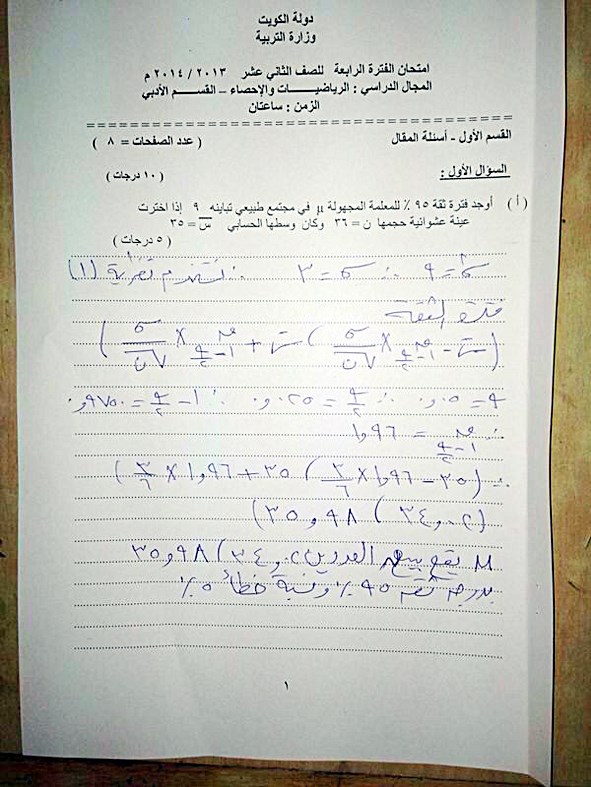 دولة الكويت
وزارة التربية
امتحان الفترة الرابعة للصف الثاني عشر ٢٠١٣ / ٢٠١٤ م
المجال الدراسي : الرياضيات والإحصاء – القسم الأدبي
الزمن : ساعتان
القسم الأول - أسئلة المقال ( عدد الصفحات = ٨ )
السؤال الأول : ( ١٠ درجات )
( أ ) أوجد فترة ثقة ٩٥ ٪ للمعلمة المجهولة µ في مجتمع طبيعي تباينه ٩ إذا اخترت
عينة عشوائية حجمها ن = ٣٦ وكان وسطها الحسابي س = ٣٥
( ٥ درجات )
σ² = ٩ ∴ σ = ٣ ∴ نستخدم نظرية (١)
فترة الثقة
( س̄ - ق ١-α/٢ × σ/√ن ، س̄ + ق ١-α/٢ × σ/√ن )
α = ٠,٠٥ ∴ α/٢ = ٠,٠٢٥ ∴ ١ - α/٢ = ٠,٩٧٥
∴ ق ١-α/٢ = ١,٩٦
∴ ( ٣٥ - ١,٩٦ × ٣/٦ ، ٣٥ + ١,٩٦ × ٣/٦ )
( ٣٤,٠٢ ، ٣٥,٩٨ )
µ يقع بين العددين ٣٤,٠٢ ، ٣٥,٩٨
بدرجة ثقة ٩٥ ٪ ونسبة خطأ ٥ ٪
١